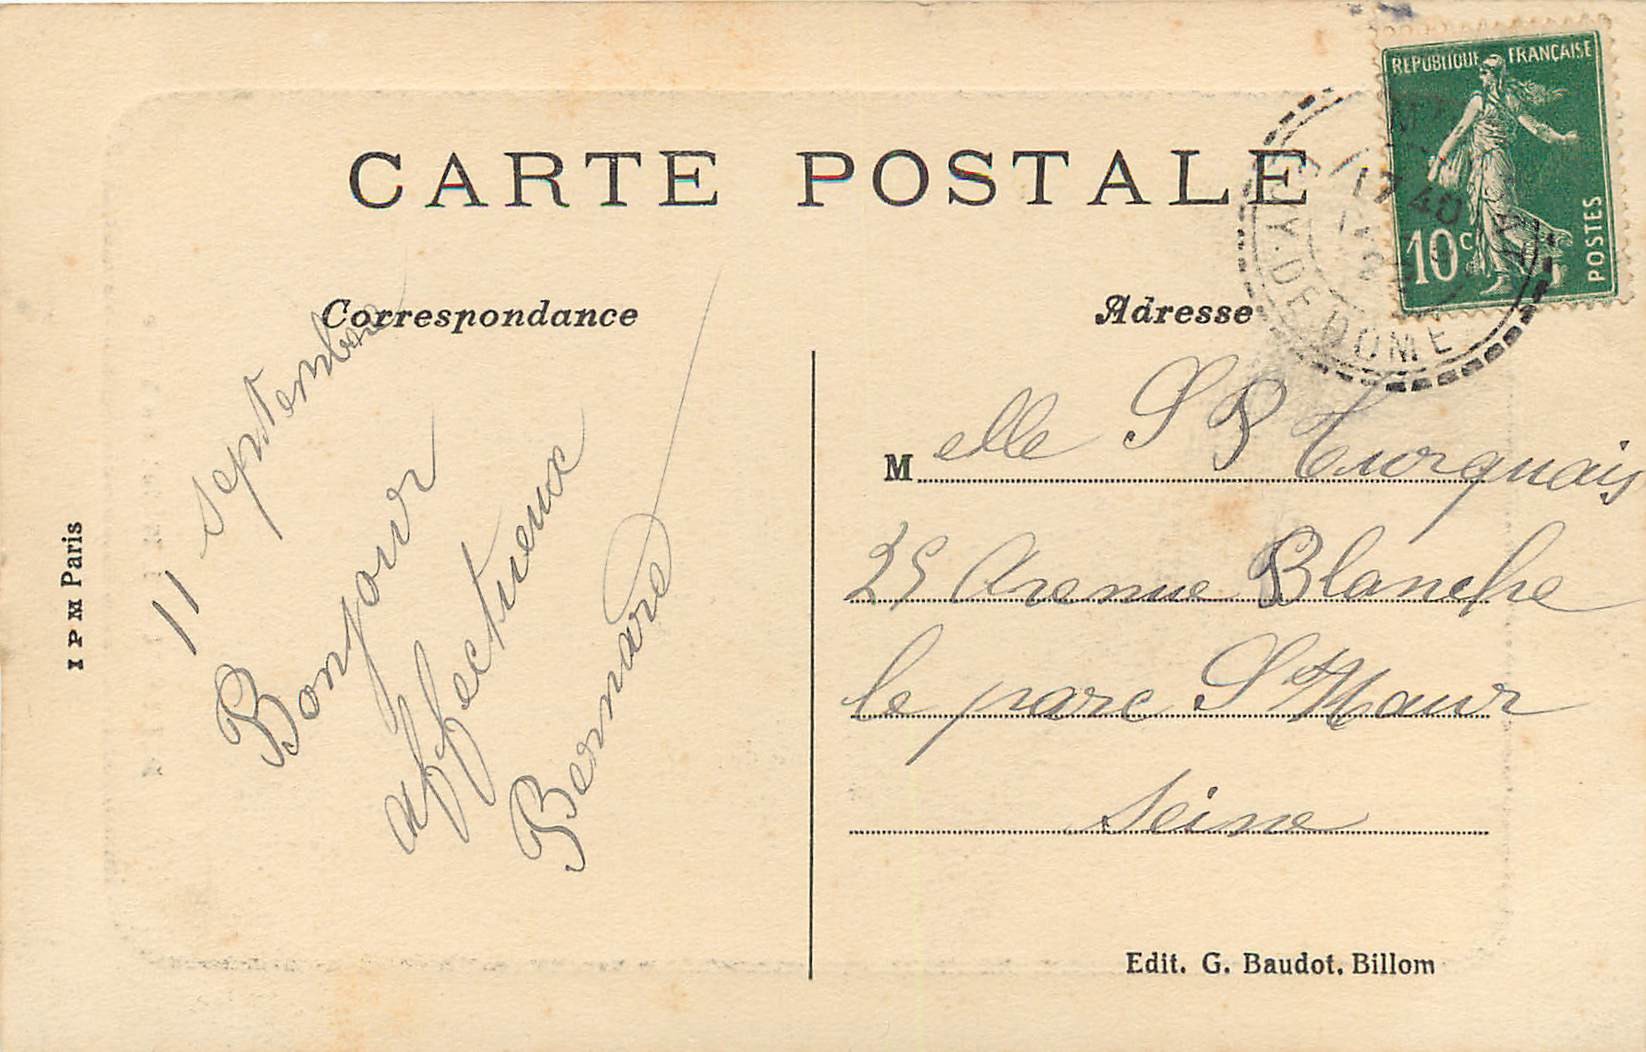 CARTE POSTALE
REPUBLIQUE FRANÇAISE
10c
POSTES
17 40
PUY-DE-DOME
Correspondance
Adresse
11 septembre
Bonjour
affectueux
Bernard
Melle S Turquais
25 Avenue Blanche
le parc St Maur
Seine
I P M Paris
Edit. G. Baudot, Billom